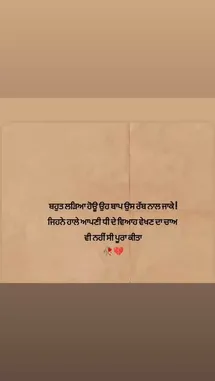 ਬਹੁਤ ਲੜਿਆ ਹੋਊ ਉਹ ਬਾਪ ਉਸ ਰੱਬ ਨਾਲ ਜਾਕੇ!
ਜਿਹਨੇ ਹਾਲੇ ਆਪਣੀ ਧੀ ਦੇ ਵਿਆਹ ਵੇਖਣ ਦਾ ਚਾਅ
ਵੀ ਨਹੀਂ ਸੀ ਪੂਰਾ ਕੀਤਾ
🥀💔